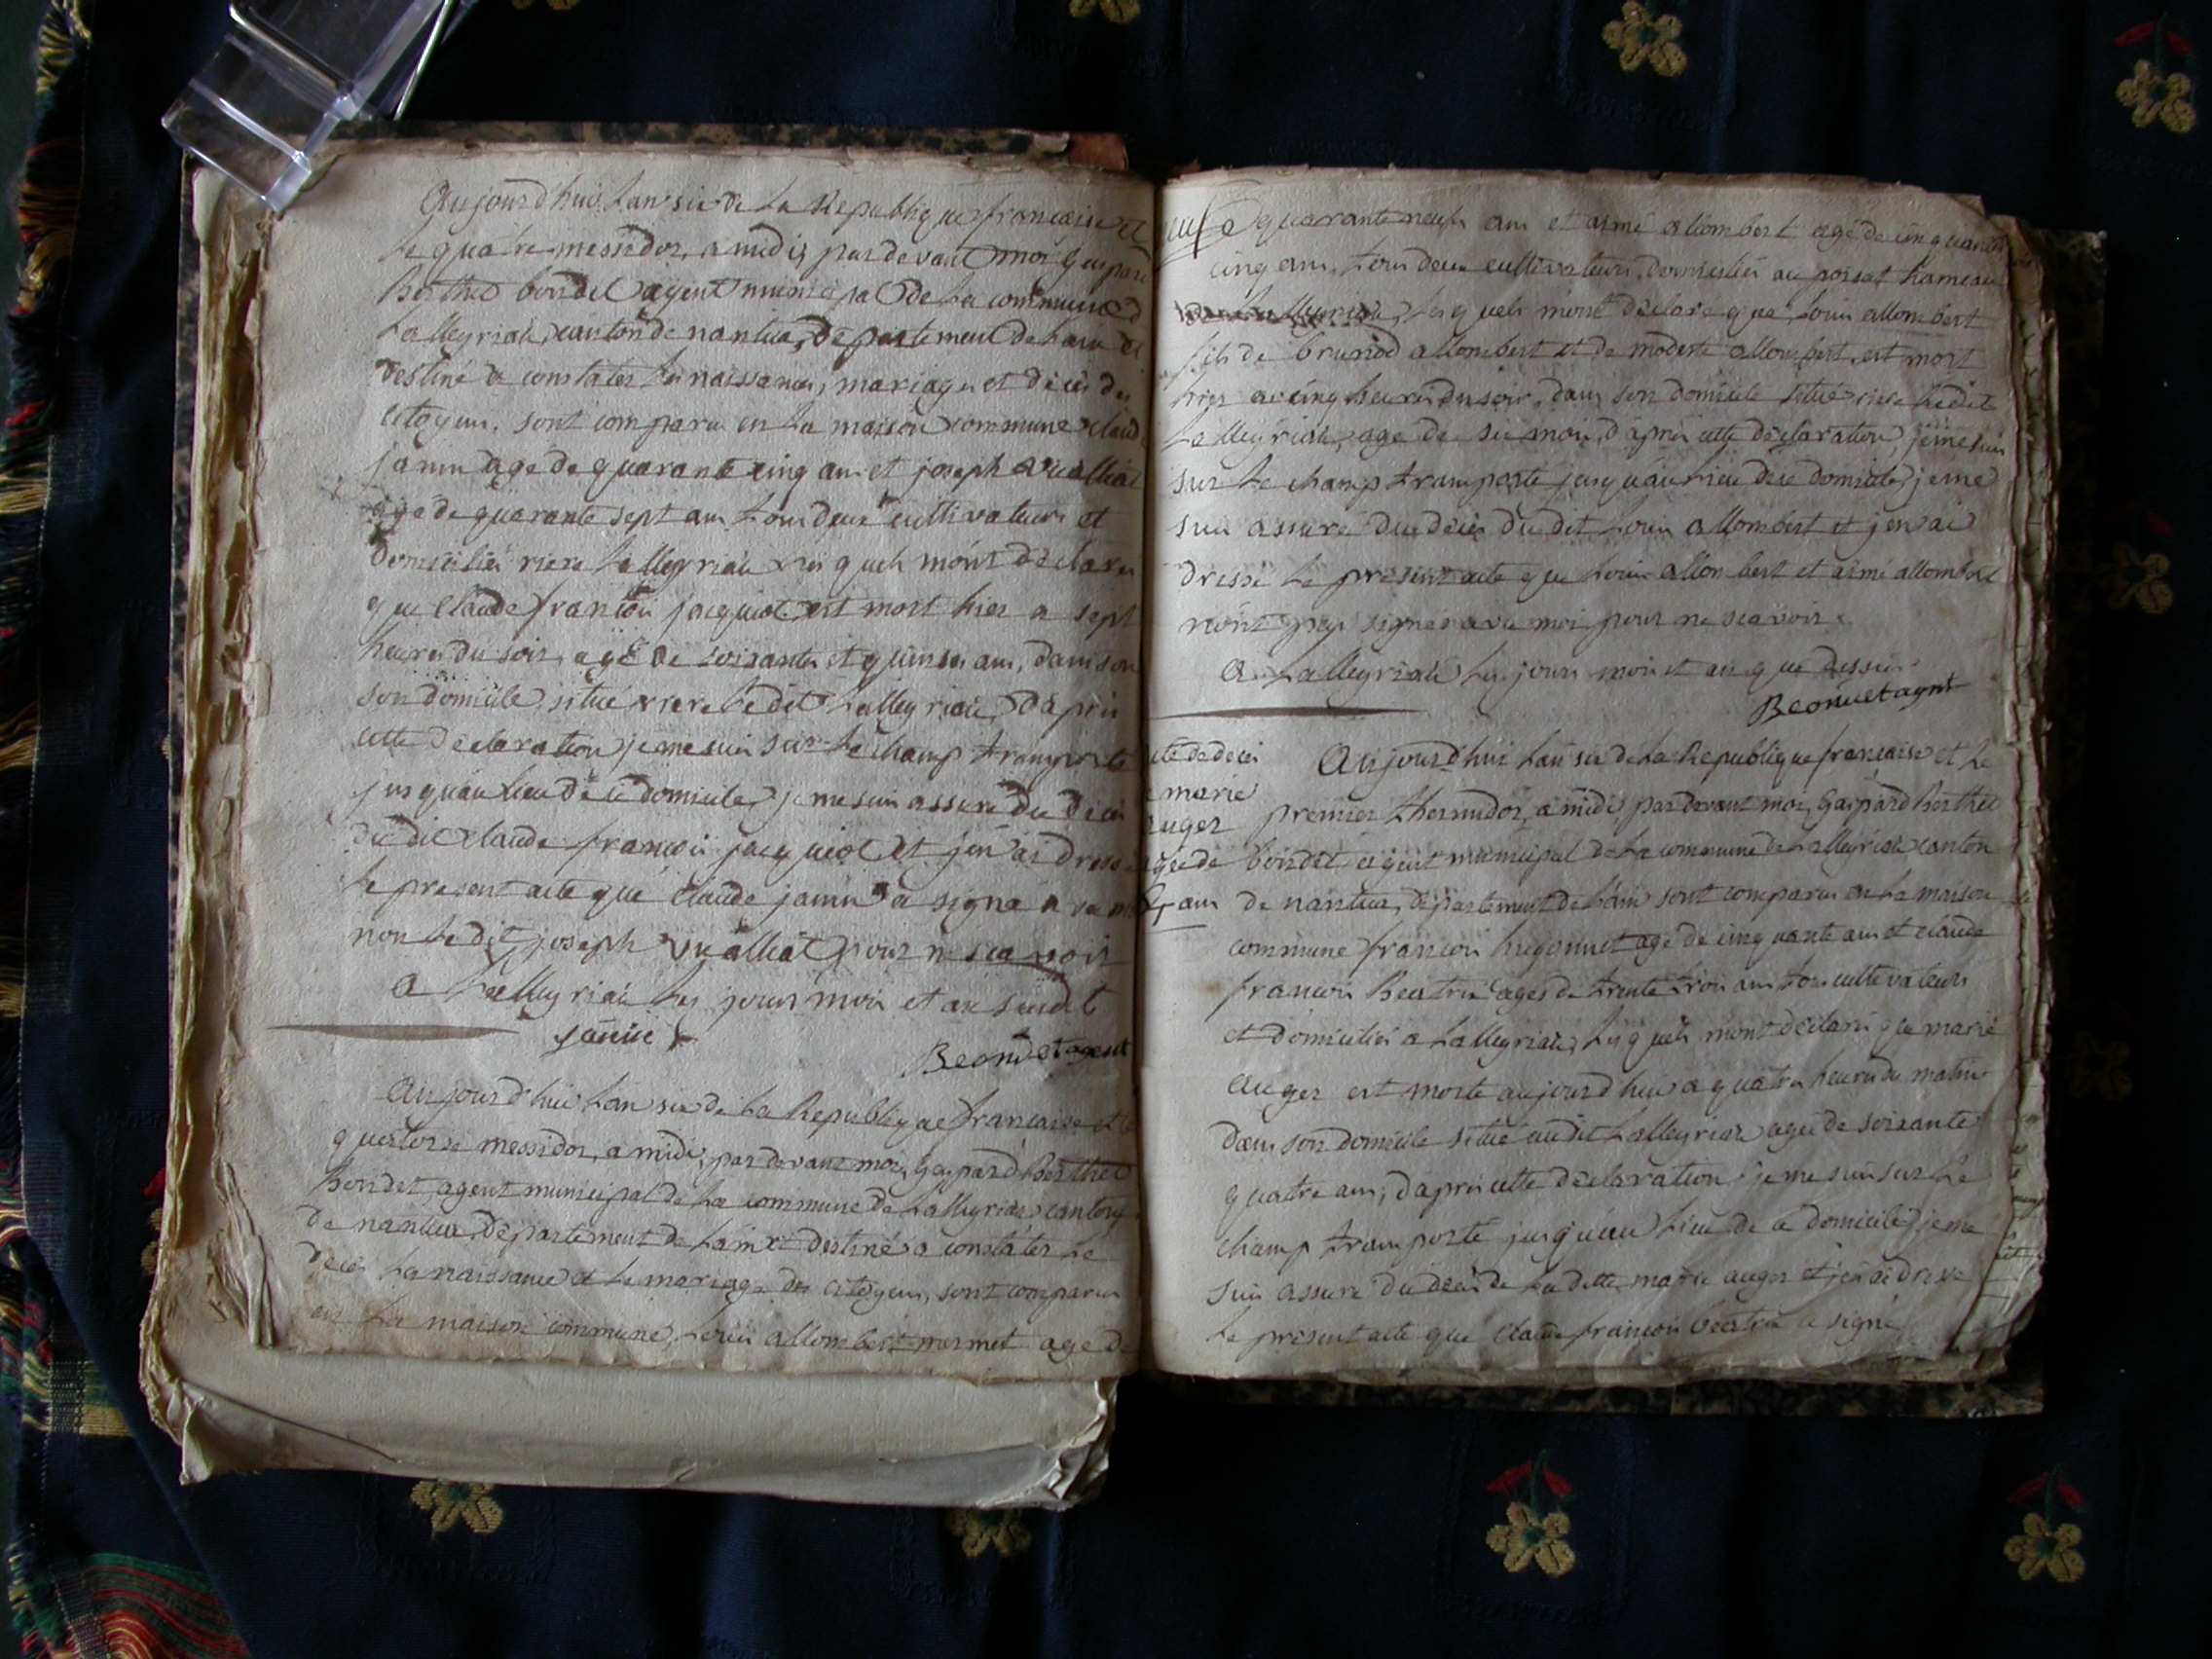 Aujourd'hui Lan six de La Republique francaise et
Le quatre messidor, a midi, par devant moi gaspard
Berthet bondet agent municipal de La commune d
Lalleyriat, canton de nantua, departement de Lain et
destiné a constater Les naissances, mariages et décès des
citoyens, sont comparu en La maison commune Claude
janin agé de quarante cinq ans et joseph vuailliat
agé de quarante sept ans tous deux cultivateurs et
domiciliés riere Lalleyriat Lesquels mont déclaré
que Claude francois jacquiot est mort hier a sept
heures du soir, agé de soixante et quinse ans, dans son
son domicile, situé riere Ledit Lalleyriat, d'après
cette déclaration je me suis sur Le champ transporte
jusquau Lieu de ce domicile, je me suis assuré du décès
du dit Claude francois jacquiot et j'en ai dressé
Le present acte que Claude janin a signé avec moi
non Le dit joseph vuailliat pour ne scavoir
a Lalleyriat Les jours mois et an susdit
janin
Bondet agent
Aujourd'hui Lan six de La Republique francaise et le
quatorse messidor, a midi, par devant moi, Gaspard Berthet
bondet, agent municipal de La commune de Lalleyriat canton
de nantua, département de Lain et destiné a constater Le
décès La naissance et Le mariage des citoyens, sont comparus
en La maison commune, Louis allombert mermet agé d
quarante neuf ans et aimé allombert agé de cinquante
cinq ans, tous deux cultivateurs, domiciliés au poisat hameau
Lalleyriat, Lesquels mont déclare que Louis allombert
fils de brunod allombert et de modeste allombert est mort
hier a cinq heures du soir, dans son domicile situé riere Ledit
Lalleyriat, agé de six mois, d'après cette déclaration, je me suis
sur Le champ transporté jusquau Lieu de ce domicile, je me
suis assuré du décès du dit Louis allombert et j'en ai
dressé Le présent acte que Louis allombert et aimé allombert
n'ont pas signés avec moi pour ne scavoir.
a Lalleyriat Les jours mois et an que dessus
Bondet agent
acte de décès
marie
auger
agée de
64 ans
Aujourd'hui Lan six de La Republique francaise et Le
premier thermidor, a midi, par devant moi, Gaspard Berthet
bondet agent municipal de La commune de Lalleyriat canton
de nantua, département de Lain sont comparus en La maison
commune francois hugonnet agé de cinquante ans et claude
francois Beatrix agés de trente trois ans tous cultivateurs
et domiciliés a Lalleyriat, Lesquels mont déclaré que marie
auger est morte aujourd'hui a quatre heures du matin
dans son domicile situé audit Lalleyriat agée de soixante
quatre ans, d'après cette déclaration je me suis sur Le
champ transporté jusquau Lieu de ce domicile, je me
suis assuré du décès de La dette marie auger et j'en ai dressé
Le présent acte que Claude francois beatrix a signé